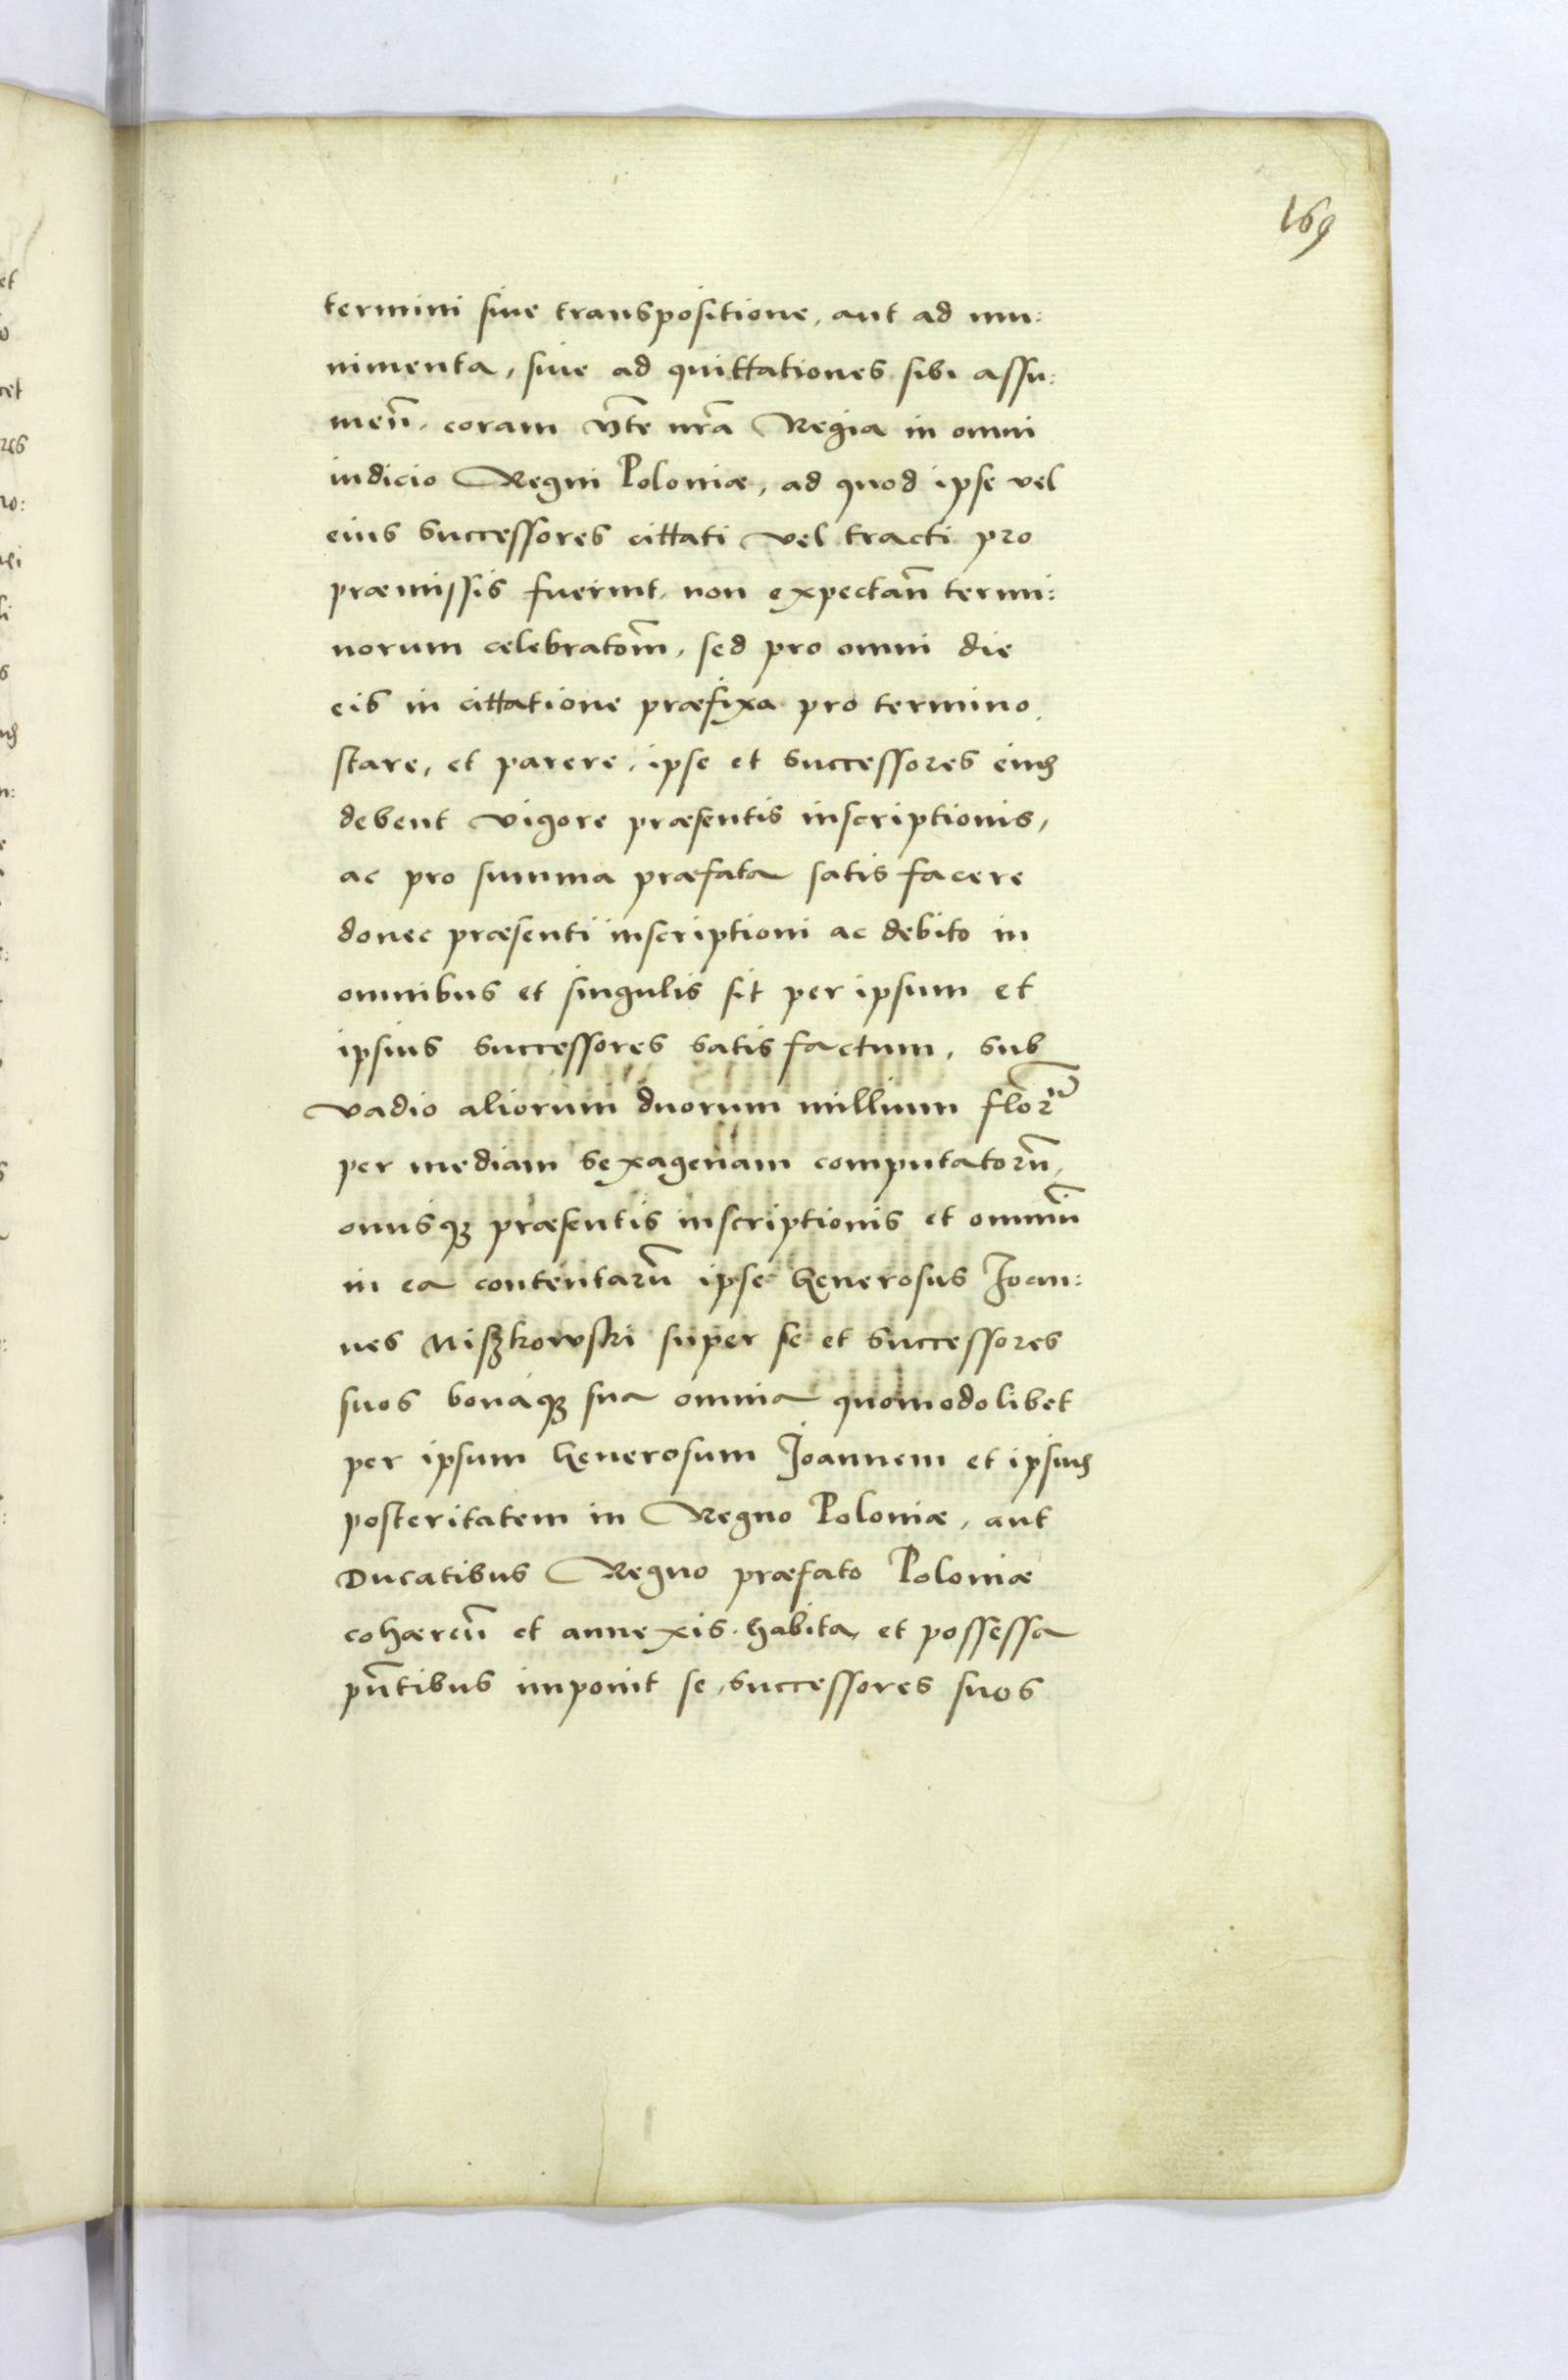 169
termini siue transpositione, aut ad mu:
nimenta, siue ad quittationes sibi assu:
men̄. coram M̄te nr̄a Regia in omni
iudicio Regni Poloniæ, ad quod ipse vel
eius successores cittati vel tracti pro
præmissis fuerint, non expectan̄ termi:
norum celebratom̄, sed pro omni die
eis in cittatione præfixa pro termino
stare, et parere, ipse et successores eius
debent vigore præsentis inscriptionis,
ac pro summa præfata satis facere
donec præsenti inscriptioni ac debito in
omnibus et singulis sit per ipsum et
ipsius successores satis factum, sub
vadio aliorum duorum millium flor̄
per mediam sexagenam computatorū,
onusq3 præsentis inscriptionis et omniū
in ea contentarū ipse Generosus Joan:
nes Niszkowski super se et successores
suos bonaq3 sua omnia quomodolibet
per ipsum Generosum Joannem et ipsius
posteritatem in Regno Poloniæ, aut
Ducatibus Regno præfato Poloniæ
cohæren̄ et annexis habita, et possessa
pn̄tibus imponit se, successores suos